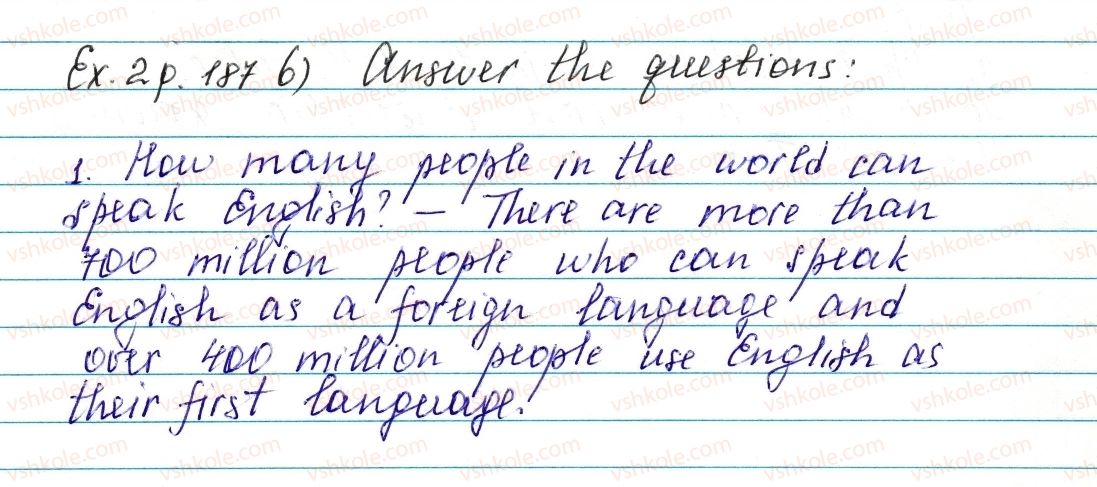 Ex. 2 p. 187 б) Answer the questions:
1. How many people in the world can
speak English? – There are more than
700 million people who can speak
English as a foreign language and
over 400 million people use English as
their first language.